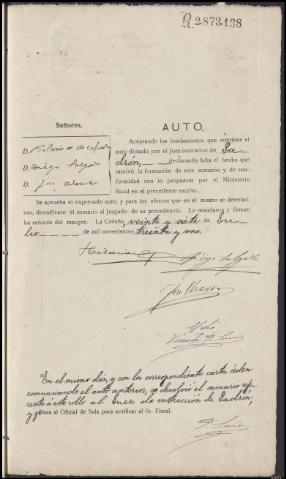 R.2873.138
Señores,
AUTO.
D.
D. Diego
D. José
Aceptando los fundamentos que contiene el
auto dictado por el Juez instructor de Pa-
drón, declarando falta el hecho que
motivó la formación de este sumario; y de con-
formidad con lo propuesto por el Ministerio
fiscal en el precedente escrito.
Se aprueba el expresado auto, y para los efectos que en el mismo se determi-
nan, devuélvase el sumario al Juzgado de su procedencia. Lo mandaron y firman
los señores del margen. La Coruña, veinte y siete de Ju-
lio de mil novecientos treinta y uno.
En el mismo día, y con la correspondiente carta orden
comunicando el auto anterior, se devolvió el sumario refe-
rente a este rollo al Juez de instrucción de Padrón,
y Pasa al Oficial de Sala para notificar al Sr. Fiscal.